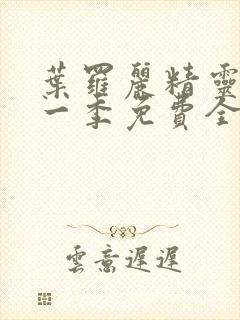 葉羅麗精靈
一季免費全
雲意遲遲